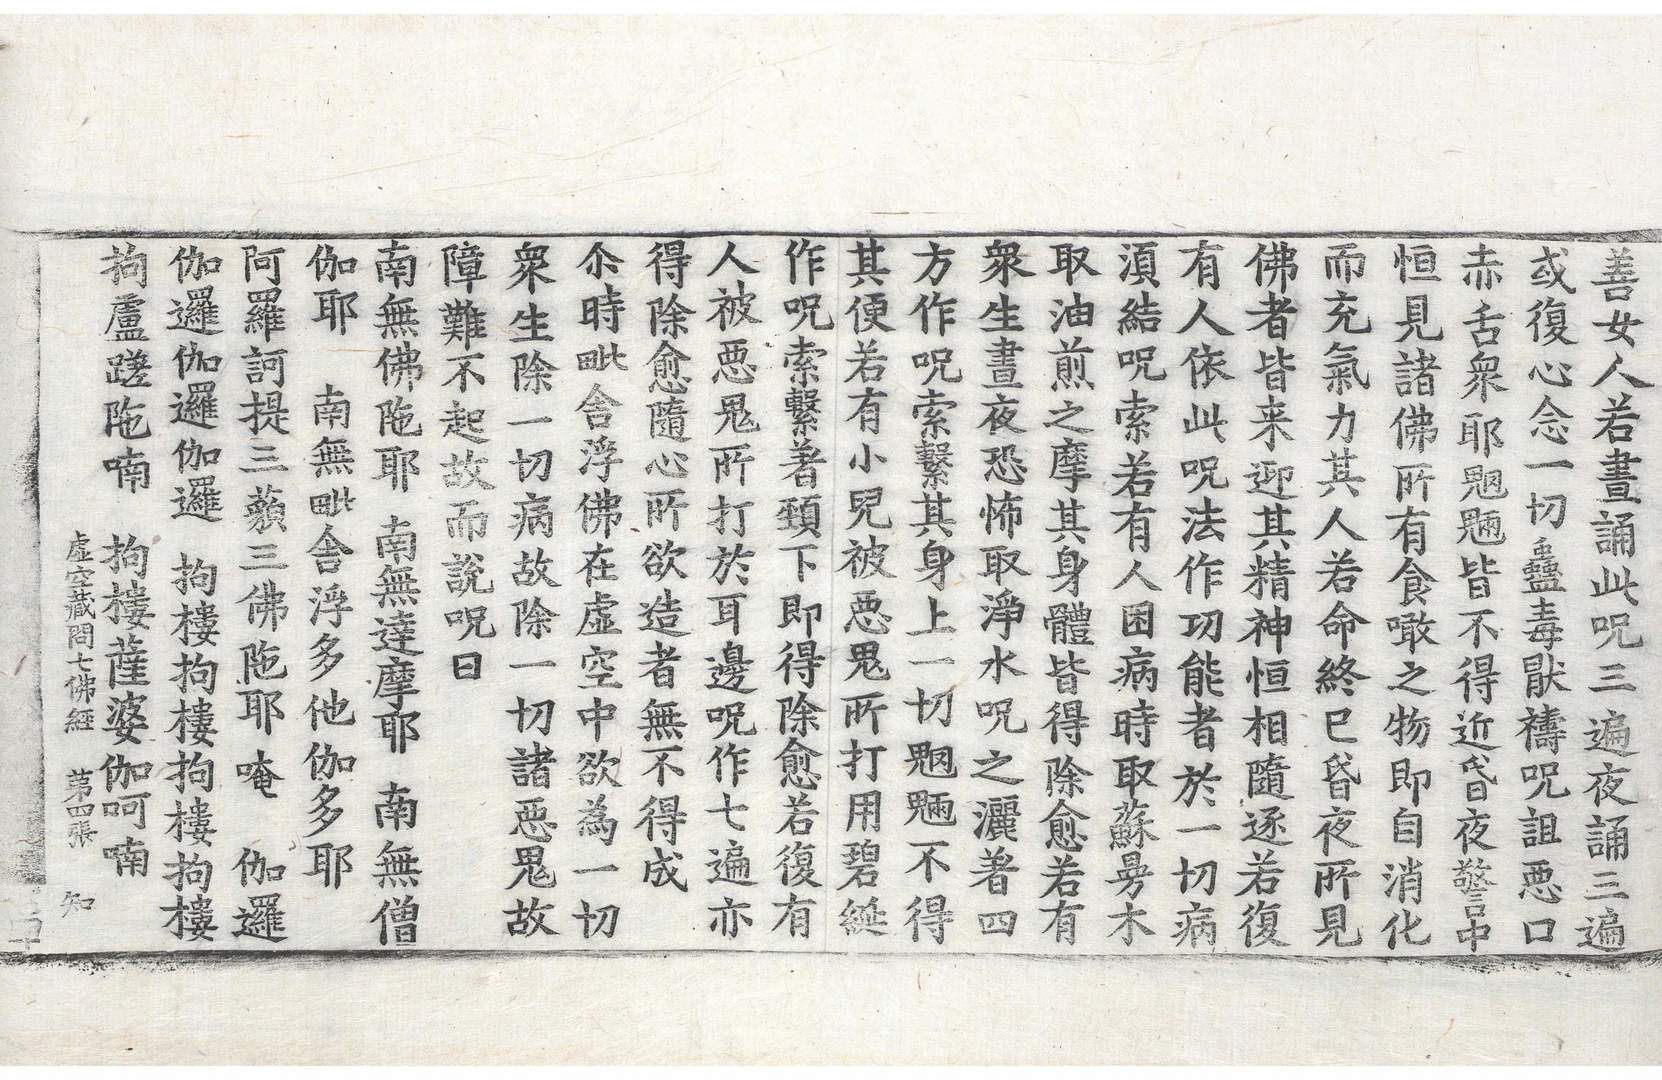 善女人若晝誦此呪三遍夜誦三遍
或復心念一切蠱毒猒禱呪詛惡口
赤舌衆耶魍魎皆不得近昏夜警中
恒見諸佛所有食噉之物即自消化
而充氣力其人若命終已昏夜所見
佛者皆来迎其精神恒相隨逐若復
有人依此呪法作功能者於一切病
湏結呪索若有人困病時取蘇㫄木
取油煎之摩其身體皆得除愈若有
衆生晝夜恐怖取淨水呪之灑著四
方作呪索繫其身上一切魍魎不得
其便若有小兒被惡鬼所打用碧綖
作呪索繫著頸下即得除愈若復有
人被惡鬼所打於耳邊呪作七遍亦
得除愈隨心所欲造者無不得成
尒時毗舍浮佛在虛空中欲為一切
衆生除一切病故除一切諸惡鬼故
障難不起故而說呪曰
南無佛陁耶 南無達摩耶 南無僧
伽耶 南無毗舍浮多他伽多耶
阿羅訶提三藐三佛陁耶 唵 伽邏
伽邏伽邏伽邏 拘樓拘樓拘樓拘樓
拘盧蹉陁喃 拘樓薩婆伽呵喃
虛空藏問七佛經 第四張 知